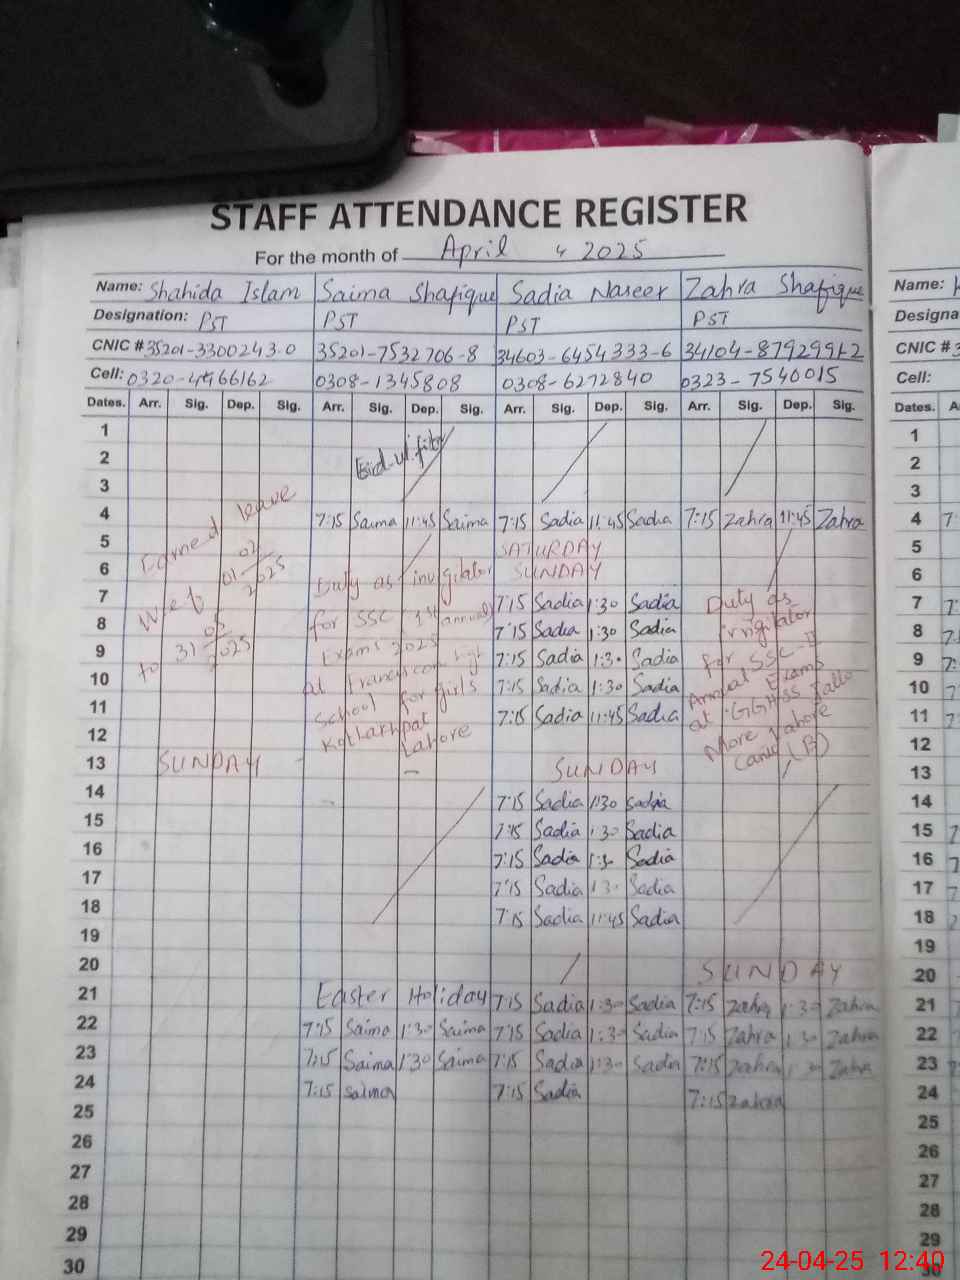 STAFF ATTENDANCE REGISTER
For the month of April 2025
Name: Shahida Islam Saima Shafique Sadia Naseer Zahra Shafique Name:
Designation: PST PST PST PST Designa
CNIC # 35201-3300243-0 35201-7532706-8 34603-6454333-6 34104-8792991-2 CNIC #
Cell: 0320-4966162 0308-1345808 0308-6272840 0323-7540015 Cell:
Dates. Arr. Sig. Dep. Sig. Arr. Sig. Dep. Sig. Arr. Sig. Dep. Sig. Arr. Sig. Dep. Sig. Dates.
1 1
2 Eid-ul-fitr 2
3 3
4 7:15 Saima 11:45 Saima 7:15 Sadia 11:45 Sadia 7:15 Zahra 11:45 Zahra 4
5 SATURDAY 5
6 SUNDAY 6
7 7:15 Sadia 1:30 Sadia 7
8 7:15 Sadia 1:30 Sadia 8
9 7:15 Sadia 1:30 Sadia 9
10 7:15 Sadia 1:30 Sadia 10
11 7:15 Sadia 11:45 Sadia 11
12 12
Earned leave
w.e.f 01-02-2025
to 31-05-2025
Duty as invigilator
for SSC 1st annual
Exams 2025
at Franciscan high
School for girls
Kotlakhpat
Lahore
Duty as
invigilator
for SSC-II
Annual Exams
at GGHSS
More Lahore
Cantt (B)
13 SUNDAY SUNDAY 13
14 7:15 Sadia 1:30 Sadia 14
15 7:15 Sadia 1:30 Sadia 15
16 7:15 Sadia 1:30 Sadia 16
17 7:15 Sadia 1:30 Sadia 17
18 7:15 Sadia 11:45 Sadia 18
19 19
20 SUNDAY 20
21 Easter Holiday 7:15 Sadia 1:30 Sadia 7:15 Zahra 1:30 Zahra 21
22 7:15 Saima 1:30 Saima 7:15 Sadia 1:30 Sadia 7:15 Zahra 1:30 Zahra 22
23 7:15 Saima 1:30 Saima 7:15 Sadia 1:30 Sadia 7:15 Zahra 1:30 Zahra 23
24 7:15 Saima 7:15 Sadia 7:15 Zahra 24
25 25
26 26
27 27
28 28
29 29
30 30
24-04-25 12:40